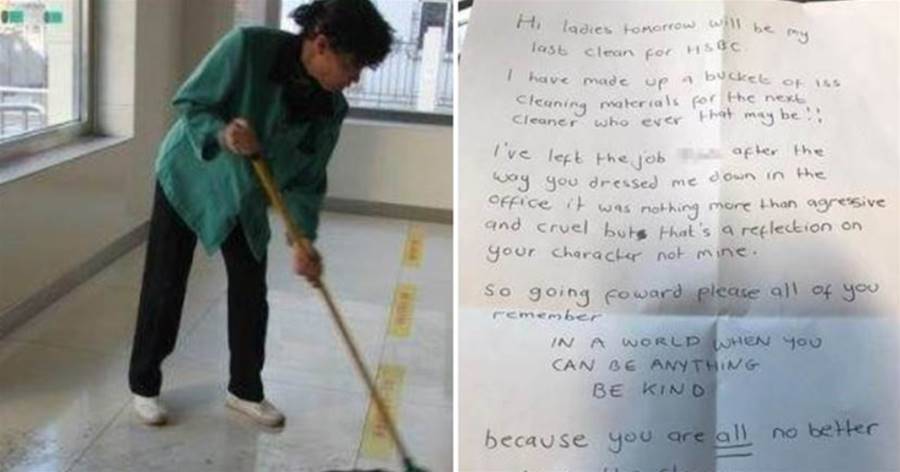 Hi ladies tomorrow will be my
last clean for HSBC
I have made up a bucket of iss
cleaning materials for the next
cleaner who ever that may be!!
I've left the job after the
way you dressed me down in the
office it was nothing more than agressive
and cruel but that's a reflection on
your character not mine.
so going foward please all of you
remember
IN A WORLD WHEN YOU
CAN BE ANYTHING
BE KIND
because you are all no better